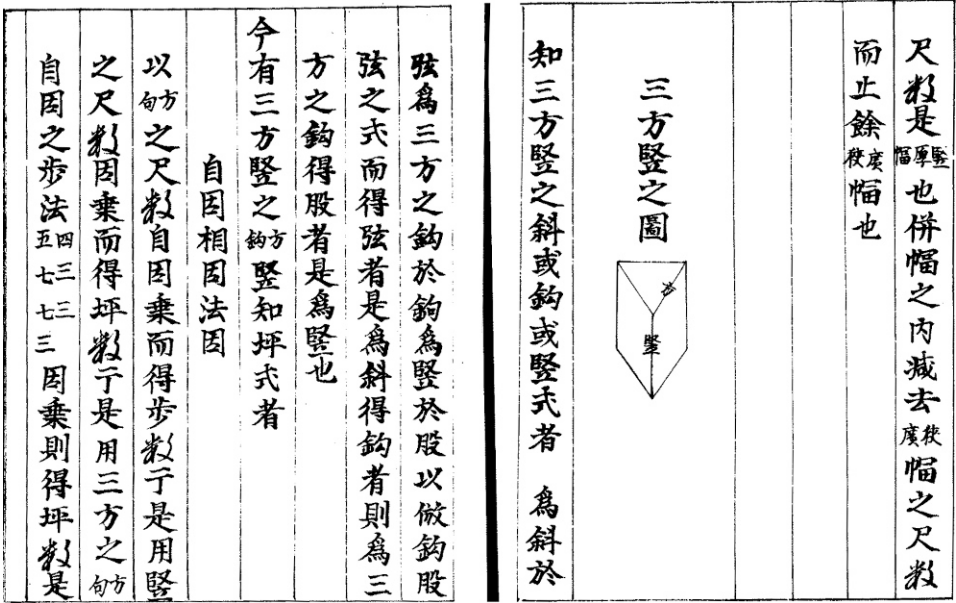 尺数是竪厚幅也併幅之内减去狹廣幅之尺数
而止餘廣狹幅也
三方竪之圖
竪
知三方竪之斜或鈎或竪式者 為斜於
弦為三方之鈎於鈎為竪於股以倣鈎股
弦之式而得弦者是為斜得鈎者則為三
方之鈎得股者是為竪也
今有三方竪之方鈎竪知坪式者
自因相因法因
以方句之尺数自因乗而得歩数于是用竪
之尺数因乗而得坪数于是用三方之方句
自因之歩法四五三七三七三因乗則得坪数是